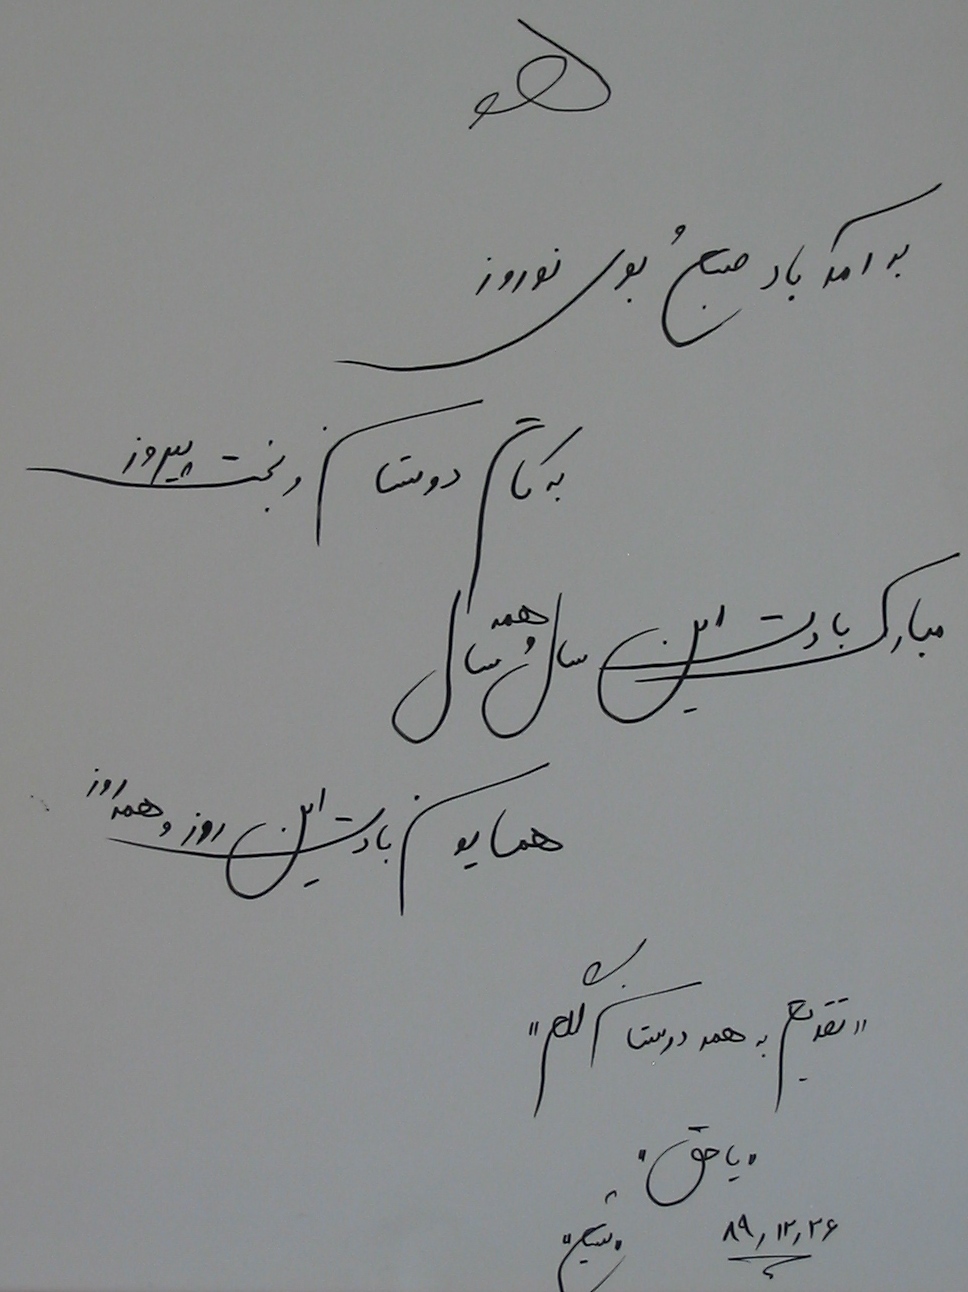 هو
برآمد باد صبح و بوی نوروز
به کام دوستان و بخت پیروز
مبارک بادت این سال و همه سال
همایون بادت این روز و همه روز
"تقدیم به همه دوستان گلم"
"یا حق"
۸۹،۱۲،۲۶